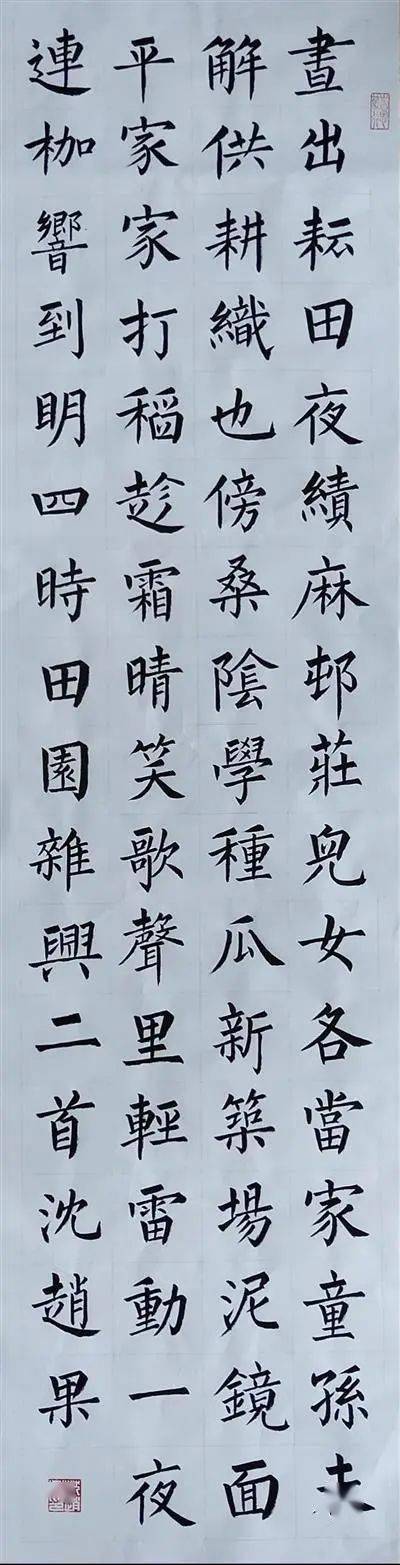 晝出耘田夜績麻邨莊兒女各當家童孫
解供耕織也傍桑陰學種瓜新築場泥鏡面
平家家打稻趁霜晴笑歌聲里輕雷動一夜
連枷響到明四時田園雜興二首沈趙果